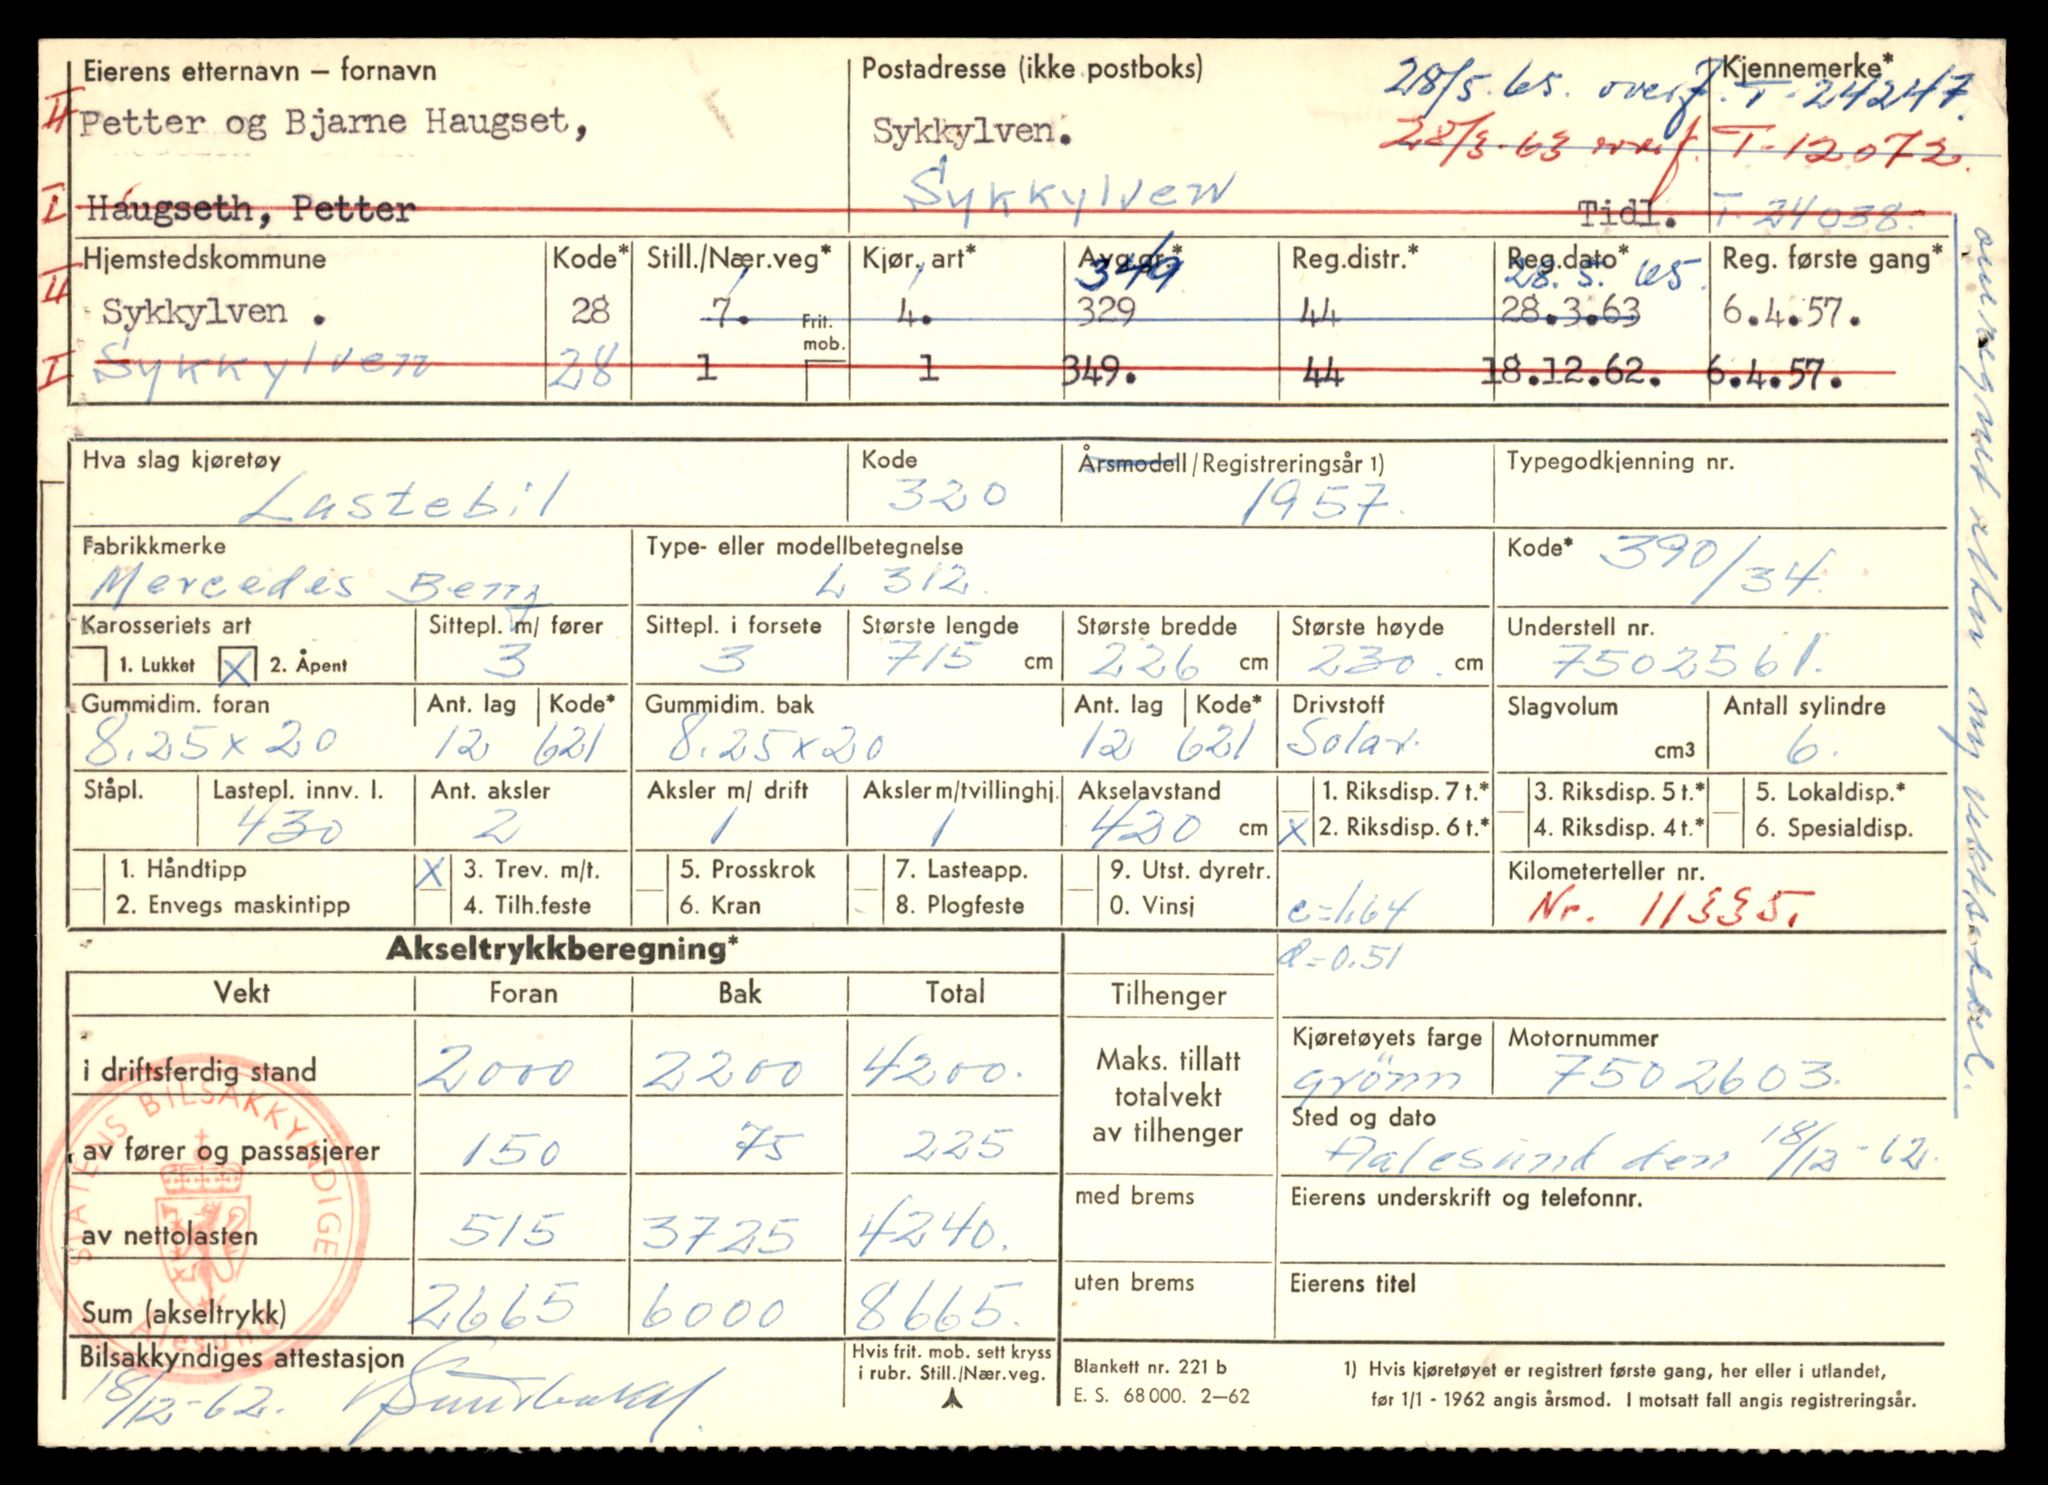 Eierens etternavn – fornavn
Postadresse (ikke postboks)
28/5.65. overf. T-24247.
Kjennemerke*
II Petter og Bjarne Haugset,
Sykkylven.
28/3-63 overf. T-12072.
Sykkylven
I Haugseth, Petter
Tidl. T-24038.
Hjemstedskommune Kode* Still./Nær.veg* Kjør. art* Avg.gr.* Reg.distr.* Reg.dato* Reg. første gang*
1 1 349 28.5.65.
II Sykkylven . 28 7. 4. 329 44 28.3.63 6.4.57.
Frit. mob.
I Sykkylven 28 1 1 349. 44 18.12.62. 6.4.57.
Hva slag kjøretøy Kode Årsmodell/Registreringsår 1) Typegodkjenning nr.
Lastebil 320 1957.
Fabrikkmerke Type- eller modellbetegnelse Kode* 390/34.
Mercedes Benz L 312.
Karosseriets art Sittepl. m/ fører Sittepl. i forsete Største lengde Største bredde Største høyde Understell nr.
1. Lukket X 2. Åpent 3 3 715 cm 226 cm 230 cm 7502561.
Gummidim. foran Ant. lag Kode* Gummidim. bak Ant. lag Kode* Drivstoff Slagvolum Antall sylindre
8.25x20 12 621 8.25x20 12 621 Solar. cm3 6.
Ståpl. Lastepl. innv. l. Ant. aksler Aksler m/ drift Aksler m/tvillinghj. Akselavstand 1. Riksdisp. 7 t.* 3. Riksdisp. 5 t.* 5. Lokaldisp.*
430 2 1 1 420 cm X 2. Riksdisp. 6 t.* 4. Riksdisp. 4 t.* 6. Spesialdisp.
1. Håndtipp X 3. Trev. m/t. 5. Prosskrok 7. Lasteapp. 9. Utst. dyretr. Kilometerteller nr.
2. Envegs maskintipp 4. Tilh.feste 6. Kran 8. Plogfeste 0. Vinsj c=1.64 Nr. 11335.
Akseltrykkberegning*
d=0.51
Vekt Foran Bak Total Tilhenger
Kjøretøyets farge Motornummer
i driftsferdig stand 2000 2200 4200.
Maks. tillatt
totalvekt
av tilhenger
grönn 7502603.
Sted og dato
av fører og passasjerer 150 75 225
Aalesund den 18/12-62.
med brems
Eierens underskrift og telefonnr.
av nettolasten 515 3725 4240.
uten brems
Eierens titel
Sum (akseltrykk) 2665 6000 8665.
STATENS BILSAKKYNDIGE
Ålesund
Bilsakkyndiges attestasjon
18/12-62.
Hvis frit. mob. sett kryss
i rubr. Still./Nær.veg.
Blankett nr. 221 b
E. S. 68 000. 2—62
1) Hvis kjøretøyet er registrert første gang, her eller i utlandet,
før 1/1 - 1962 angis årsmod. I motsatt fall angis registreringsår.
omregnet etter ny vektseddel.